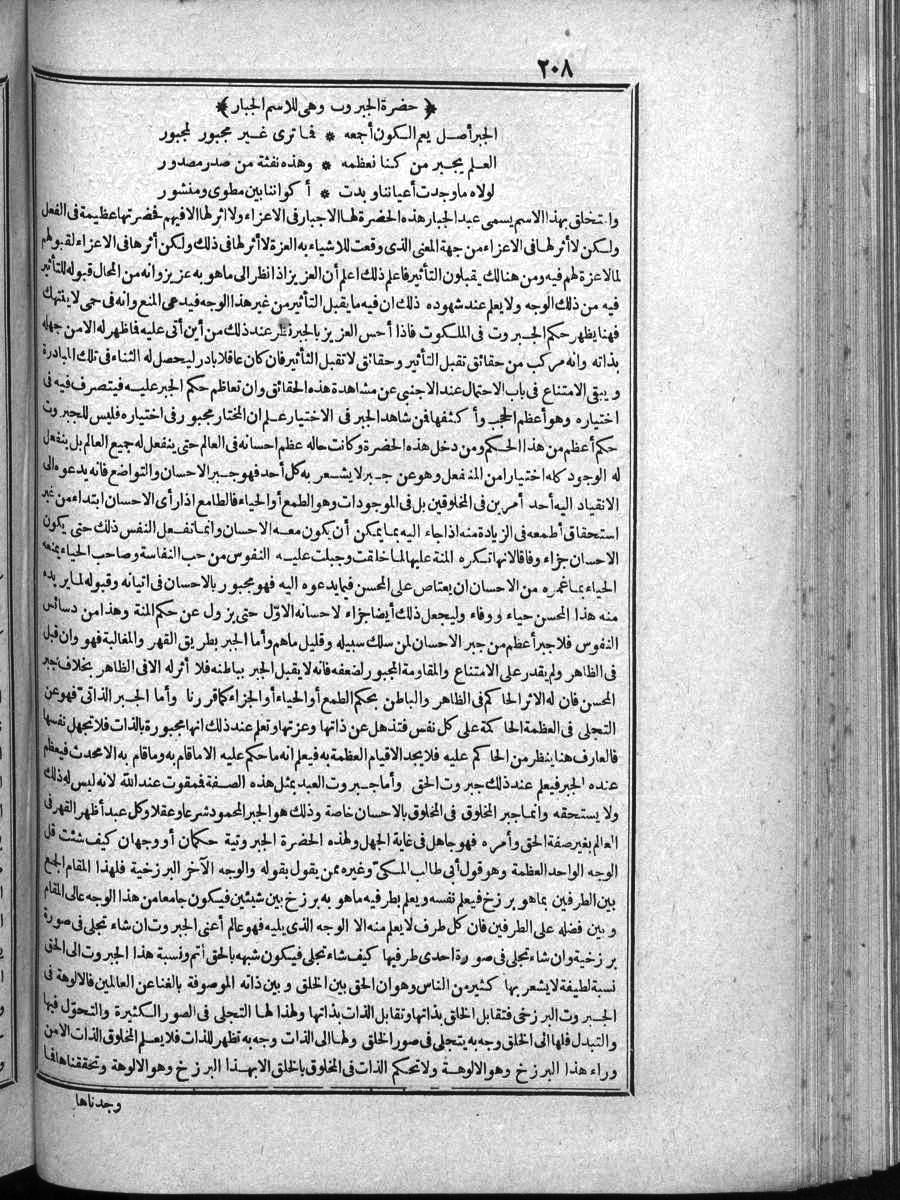 ٢٠٨
﴿ حضرة الجبروت وهى للاسم الجبار ﴾
الجبر أصل يعم الكون أجمعه * فما ترى غير مجبور لمجبور
العلم يجبر من كنا نعظمه * وهذه نفثة من صدر مصدور
لولاه ما وجدت أعياننا وبدت * أكواننا بين مطوى ومنشور
والمتخلق بهذا الاسم يسمى عبد الجبار هذه الحضرة لها الاجبار فى الاعزاء ولا اثر لها الا فيهم فحضرتها عظيمة فى الفعل
ولكن لا أثر لها فى الاعزاء من جهة المعنى الذى وقعت للاشياء به العزة لا أثر لها فى ذلك ولكن أثرها فى الاعزاء لقبولهم
لما لا عزة لهم فيه ومن هنالك يقبلون التأثير فاعلم ذلك اعلم أن العزيز اذا نظر الى ما هو به عزيز وانه من المحال قبوله للتأثير
فيه من ذلك الوجه ولا يعلم عند شهوده ذلك ان فيه ما يقبل التأثير من غير هذا الوجه فيدعى المنع وانه فى حمى لا ينتهك
فهنا يظهر حكم الجبروت فى الملكوت فاذا أحس العزيز بالجبر نظر عند ذلك من أين أتى عليه فاظهر له الامن جهله
بذاته وانه مركب من حقائق تقبل التأثير وحقائق لا تقبل التأثير فان كان عاقلا بادر ليحصل له الثناء فى تلك المبادرة
ويبقى الامتناع فى باب الاحتمال عند الاجنبى عن مشاهدة هذه الحقائق وان تعاظم حكم الجبر عليه فيتصرف فيه فى
اختياره وهو أعظم الحجب وأكثفها فمن شاهد الجبر فى الاختيار علم ان المختار مجبور فى اختياره فليس للجبروت
حكم أعظم من هذا الحكم ومن دخل هذه الحضرة وكانت حاله عظم احسانه فى العالم حتى ينفعل له جميع العالم بل ينفعل
له الوجود كله اختيارا من المنفعل وهو عن جبر لا يشعر به كل أحد فهو جبر الاحسان والتواضع فانه يدعوه الى
الانقياد اليه أحد أمرين فى المخلوقين بل فى الموجودات وهو الطمع أو الحياء فالطامع اذا رأى الاحسان ابتداء من غير
استحقاق أطمعه فى الزيادة منه اذا جاء اليه بما يمكن أن يكون معه الاحسان وانما تفعل النفس ذلك حتى يكون
الاحسان جزاء وفاقا لانها تكره المنة عليها لما خلقت وجبلت عليه النفوس من حب النفاسة وصاحب الحياء يمنعه
الحياء بما غمره من الاحسان ان يعتاص على المحسن فيما يدعوه اليه فهو مجبور بالاحسان فى اتيانه وقبوله لما يريده
منه هذا المحسن حياء ووفاء وليجعل ذلك أيضا جزاء لاحسانه الاول حتى يزول عن حكم المنة وهذا من دسائس
النفوس فلا جبر أعظم من جبر الاحسان لمن سلك سبيله وقليل ما هم وأما الجبر بطريق القهر والمغالبة فهو وان قبل
فى الظاهر ولم يقدر على الامتناع والمقاومة المجبور لضعفه فانه لا يقبل الجبر بباطنه فلا أثر له الا فى الظاهر بخلاف جبر
المحسن فان له الاثر الحاكم فى الظاهر والباطن بحكم الطمع أو الحياء أو الجزاء كما قررنا وأما الجبر الذاتى فهو عن
التجلى فى العظمة الحاكمة على كل نفس فتذهل عن ذاتها وعزتها وتعلم عند ذلك انها مجبورة بالذات فلا تجهل نفسها
فالعارف هنا ينظر من الحاكم عليه فلا يجد الا قيام العظمة به فيعلم انه ما حكم عليه الا ما قام به وما قام به الا محدث فيعظم
عنده الجبر فيعلم عند ذلك جبروت الحق وأما جبروت العبد بمثل هذه الصفة فممقوت عند الله لانه ليس له ذلك
ولا يستحقه وانما جبر المخلوق فى المخلوق بالاحسان خاصة وذلك هو الجبر المحمود شرعا وعقلا وكل عبد أظهر القهر فى
العالم بغير صفة الحق وأمره فهو جاهل فى غاية الجهل ولهذه الحضرة الجبروتية حكمان أو وجهان كيف شئت قل
الوجه الواحد العظمة وهو قول أبى طالب المكى وغيره ممن يقول بقوله والوجه الآخر البرزخية فلهذا المقام الجمع
بين الطرفين بما هو برزخ فيعلم نفسه ويعلم بطرفيه ما هو به برزخ بين شيئين فيكون جامعا من هذا الوجه عالى المقام
وبين فضله على الطرفين فان كل طرف لا يعلم منه الا الوجه الذى يليه فهو عالم أعنى الجبروت ان شاء تجلى فى صورة
برزخية وان شاء تجلى فى صورة احدى طرفيها كيف شاء تجلى فيكون شبهه بالحق أتم ونسبة هذا الجبروت الى الحق
نسبة لطيفة لا يشعر بها كثير من الناس وهو ان الحق بين الخلق وبين ذاته الموصوفة بالغنا عن العالمين فالالوهة فى
الجبروت البرزخى فتقابل الخلق بذاتها وتقابل الذات بذاتها ولهذا لها التجلى فى الصور الكثيرة والتحول فيها
والتبدل فلها الى الخلق وجه به يتجلى فى صور الخلق ولها الى الذات وجه به تظهر للذات فلا يعلم المخلوق الذات الا من
وراء هذا البرزخ وهو الالوهة ولا تحكم الذات فى المخلوق بالخلق الا بهذا البرزخ وهو الالوهة وتحققناها فما
وجدناها